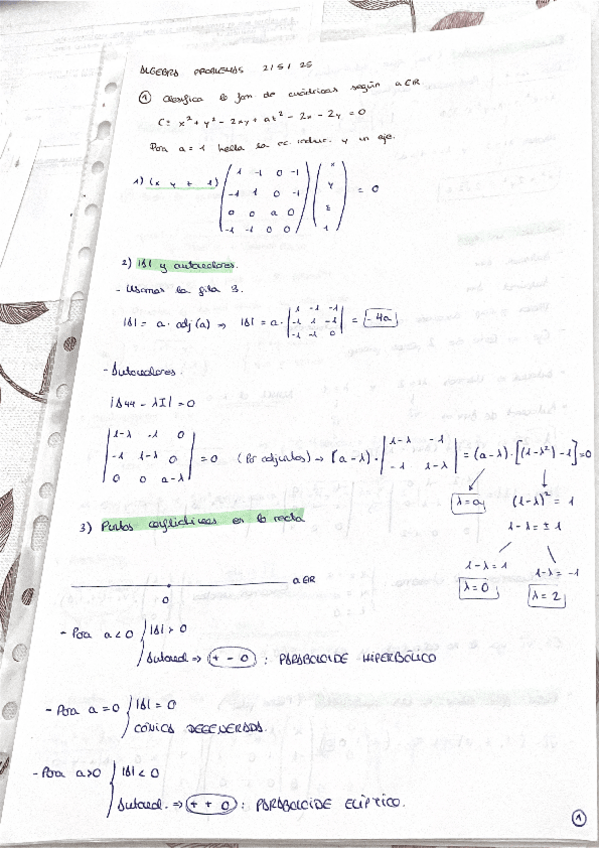 ALGEBRA PROBLEMAS 2/5/25
① Clasifica la fam de cuádricas según a∈R.
C: x² + y² - 2xy + az² - 2x - 2y = 0
Para a = 1 halla la ec. reduc. y un eje.
1) (x y z 1) ( 1 -1 0 -1 ) ( x )
( -1 1 0 -1 ) ( y ) = 0
( 0 0 a 0 ) ( z )
( -1 -1 0 0 ) ( 1 )
2) |A| y autovalores.
- Usamos la fila 3.
|A| = a · adj(a) ⇒ |A| = a · | 1 -1 -1 | = -4a
| -1 1 -1 |
| -1 -1 0 |
- Autovalores.
|A44 - λI| = 0
| 1-λ -1 0 |
| -1 1-λ 0 | = 0 (Por adjuntos) → (a-λ) · | 1-λ -1 | = (a-λ) · [(1-λ²) - 1] = 0
| 0 0 a-λ | | -1 1-λ |
λ = a (1-λ)² = 1
1-λ = ± 1
1-λ = 1 1-λ = -1
λ = 0 λ = 2
3) Puntos conflictivos en la recta
a∈R
0
- Para a < 0 { |A| > 0
Autoval ⇒ (+ - 0) : PARABOLOIDE HIPERBÓLICO
- Para a = 0 { |A| = 0
CÓNICA DEGENERADA.
- Para a>0 { |A| < 0
Autoval. ⇒ (+ + 0) : PARABOLOIDE ELÍPTICO.
①